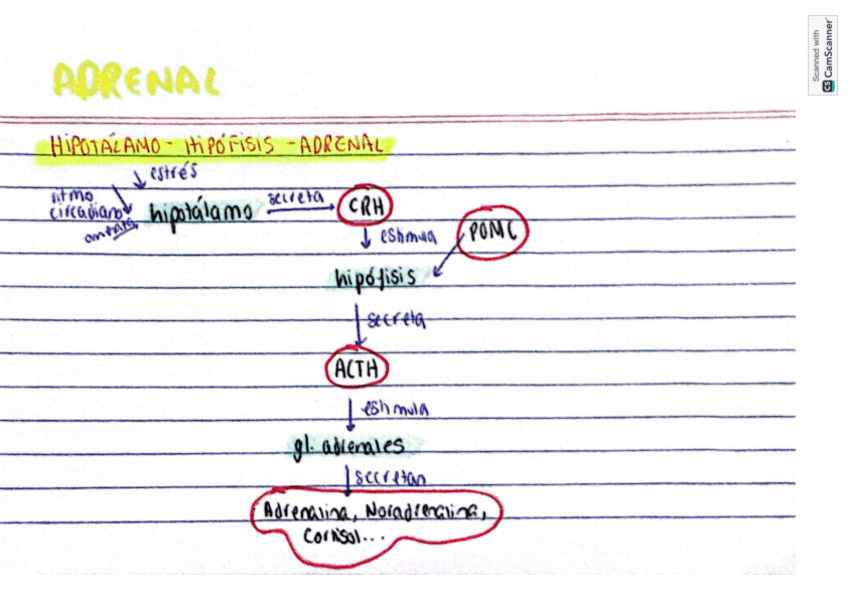 Scanned with
CS CamScanner
ADRENAL
HIPOTÁLAMO - HIPÓFISIS - ADRENAL
estrés
ritmo
circadiano
hipotálamo
secreta
CRH
estimula
POMC
hipófisis
secreta
ACTH
estimula
gl. adrenales
secretan
Adrenalina, Noradrenalina,
Cortisol...